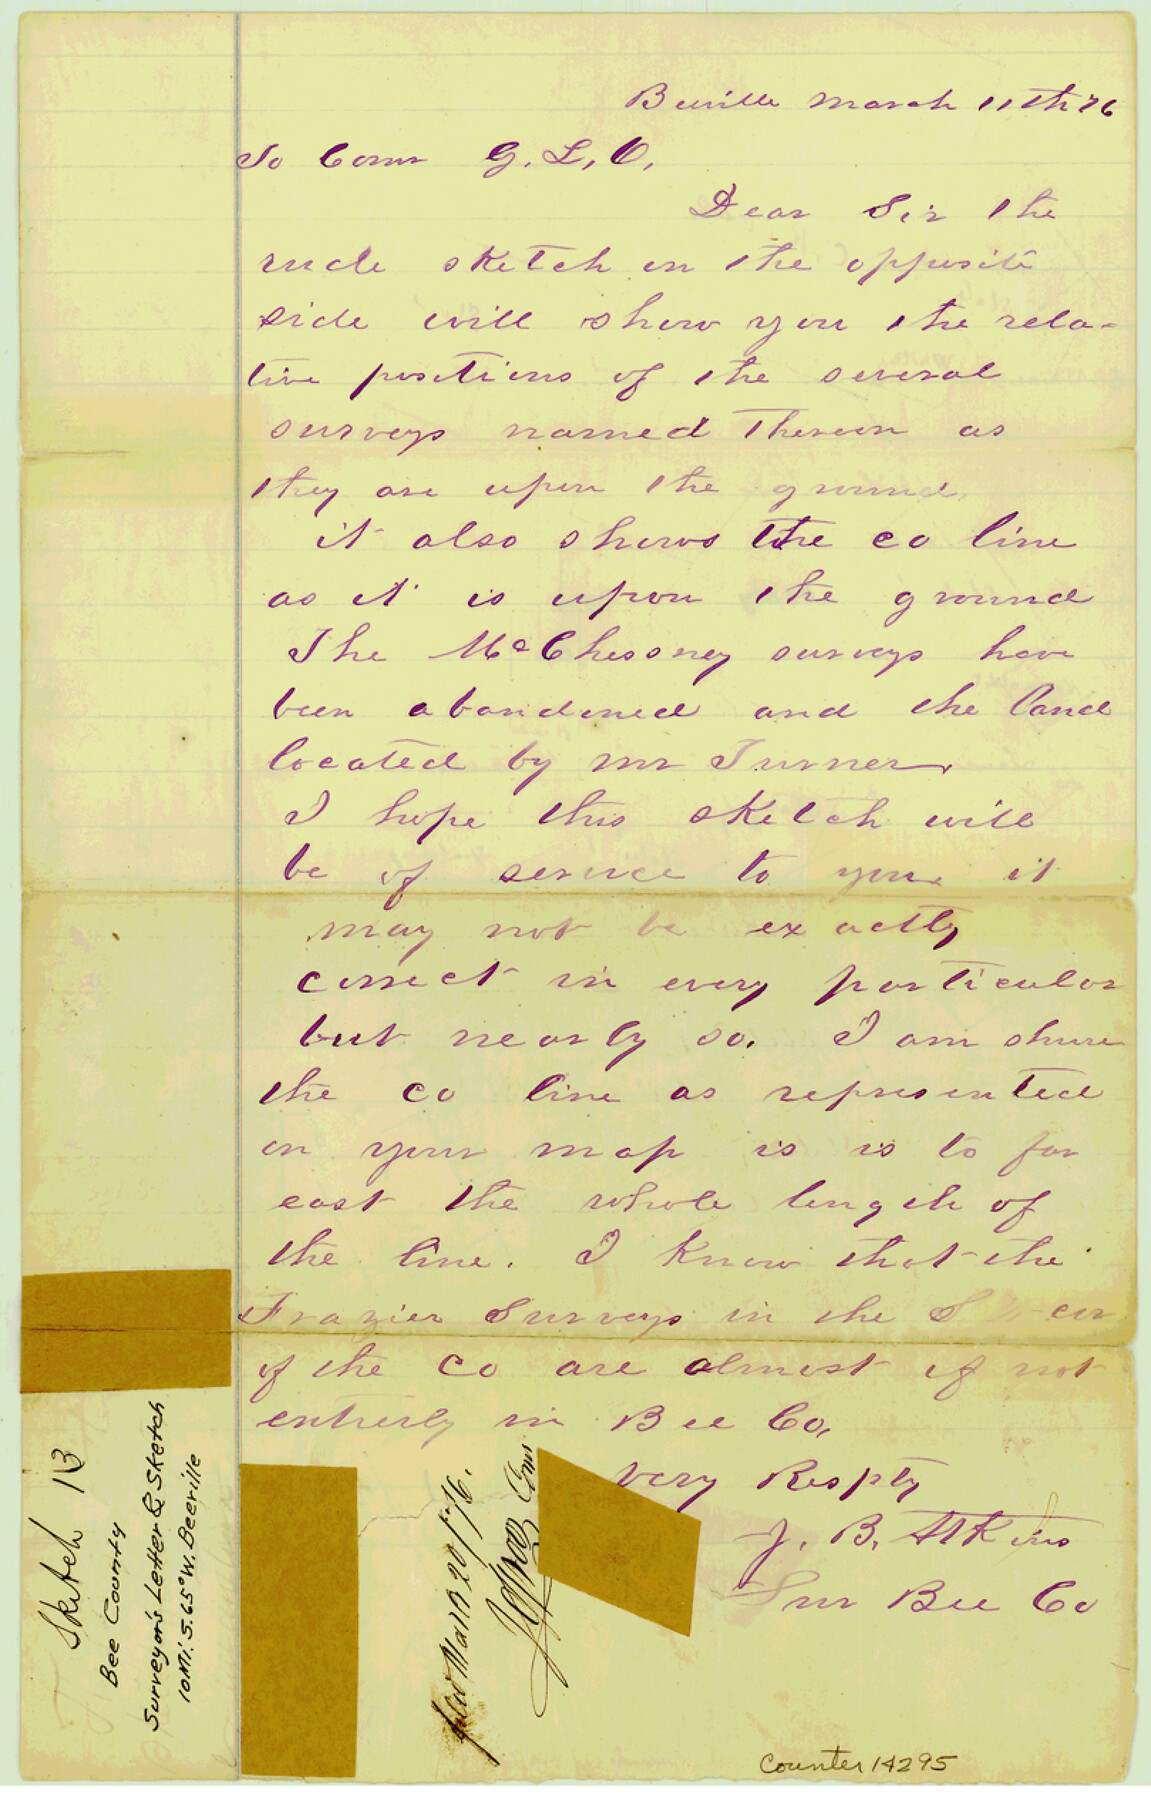 Beeville March 11th 76
To Comr G. L. O.
Dear Sir the
rude sketch on the opposite
side will show you the rela-
tive positions of the several
surveys named thereon as
they are upon the ground
it also shows the co line
as it is upon the ground
The McChessney surveys have
been abandoned and the land
located by mr Turner.
I hope this sketch will
be of service to you it
may not be exactly
correct in every particular
but nearly so. I am shure
the co line as represented
on your map is is to far
east the whole length of
the line. I know that the
Frazier Surveys in the S cor
of the co are almost if not
entirely in Bee Co,
Very Respty
J. B. Atkins
Sur Bee Co
Sketch 13
Bee County
Surveyor's Letter & Sketch
10 Mi. S. 65° W. Beeville
filed March 20th 76.
Com
Counter 14295